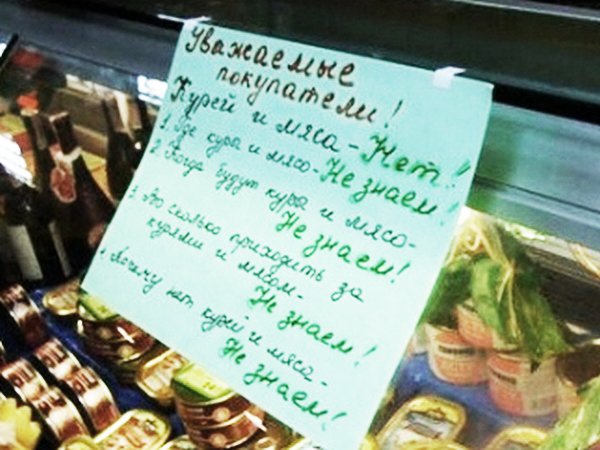 Уважаемые
покупатели!
Курей и мяса - Нет!!
1. Где кура и мясо - Не знаем!
2. Когда будут кура и мясо -
Не знаем!
3. Во сколько приходить за
курями и мясом -
Не знаем!
4. Почему нет курей и мяса -
Не знаем!